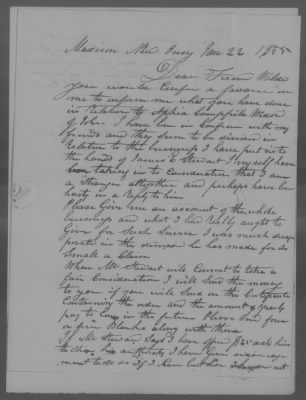 Madison New Jersey Jan 22 1855
Dear Friend Wilde
you would Confer a favour on
me to inform me what you have done
in Relation to Sophia widow
of John I have been in Confirm with my
friends and they seem to be divided in
Relation to the business I have put into
the hands of James Stewart I myself have
been taking in to Consideration that I am
a Stranger altogether and perhaps have been
hasty in a Reply to him
Please Give me an account of the whole
business and what I had Really aught to
Give for Such Service I was much disap
pointed in the demand he has made for so
Small a Claim
When Mr Stewart will Consent to take a
fair Consideration I will Send the money
to you if you will Send on the Certificate
Containing the order and the amount freely
pay to him in the future Please Send four
or five Blanks along with them
If Mr Stewart Says I have offered $25 ask him
to Show his authority I have Give
ment to do so If I have let him out